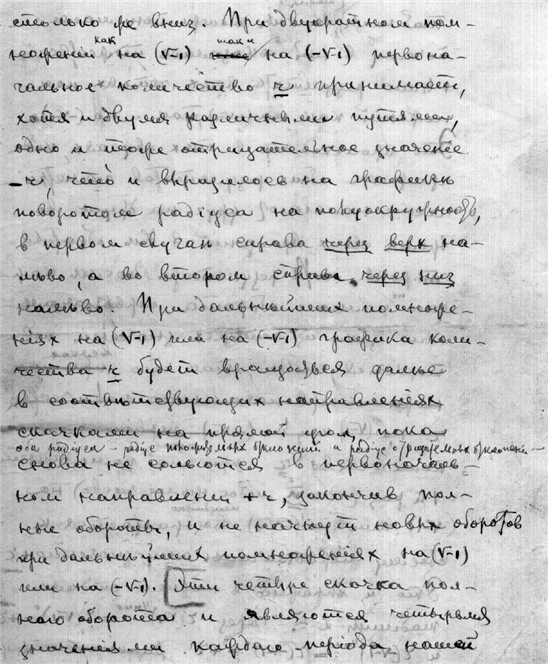 столько же вниз. При двукратном пом-
ножении как на (√-1) так и на (-√-1) первона-
чальное количество ч принимает,
хотя и двумя различными путями,
одно и тоже отрицательное значение
-ч, что и выразилось на графикѣ
поворотом радіуса на полуокружность,
в первом случаѣ справа через верх на-
лѣво, а во втором справа через низ
налѣво. При дальнѣйших помноже-
ніях на (√-1) или на (-√-1) графика коли-
чества ч будет вращаться далѣе
в соотвѣтствующих направленіях
скачками на прямой угол, пока
оба радіуса - радіус и радіус
снова не сольются в первоначаль-
ном направленіи +ч, закончив пол-
ные обороты, и не начнут новых оборотов
при дальнѣйших помноженіях на (√-1)
или на (-√-1). [Эти четыре скачка пол-
наго оборота и являются четырьмя
значеніями каждаго періода нашей